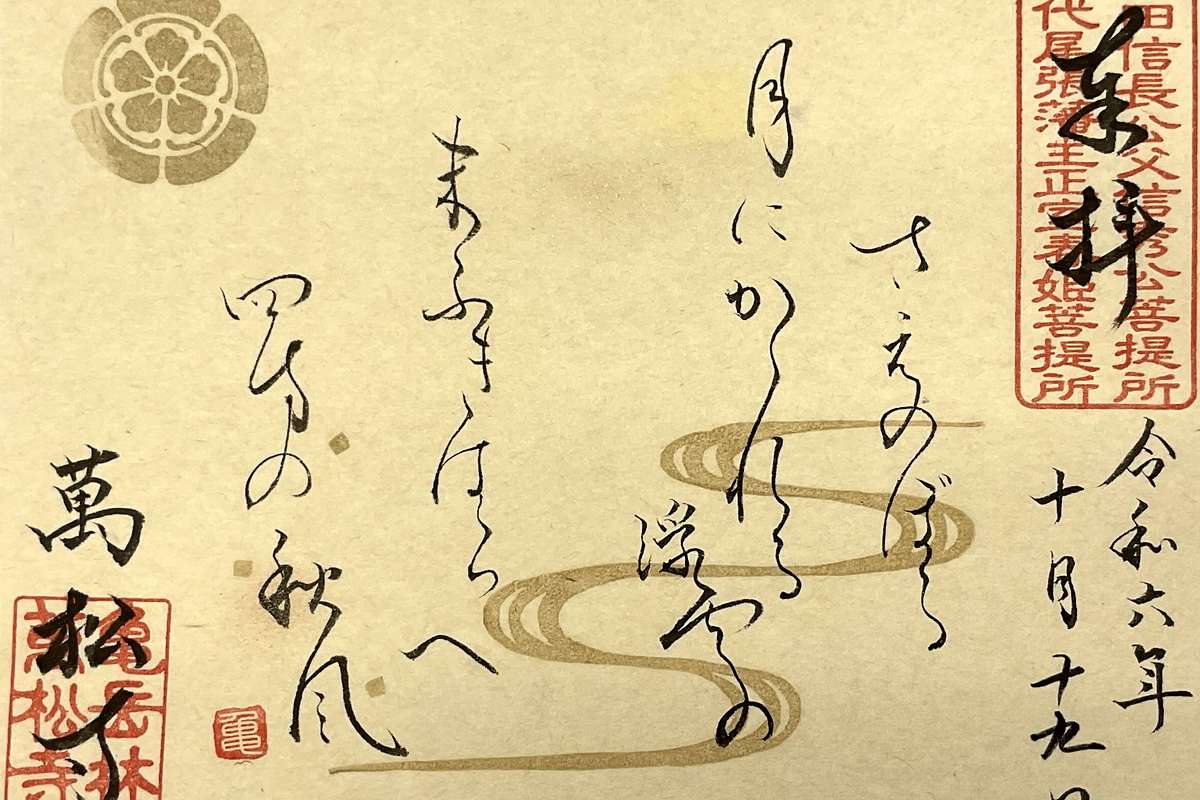 奉拝
田信長公父信秀公菩提所
代尾張藩主正室春姫菩提所
令和六年
十月十九日
さえのぼる
月にかかれる
浮雲の
末ふきはらへ
四方の秋風
亀
萬松寺
亀岳林
萬松寺